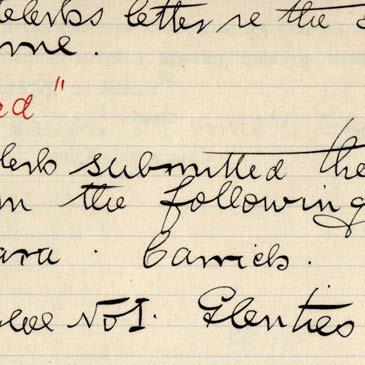 clerks letter re the
me.
ed "
lerk submitted the
in the following
ara . Carrick .
loe No I. Glenties